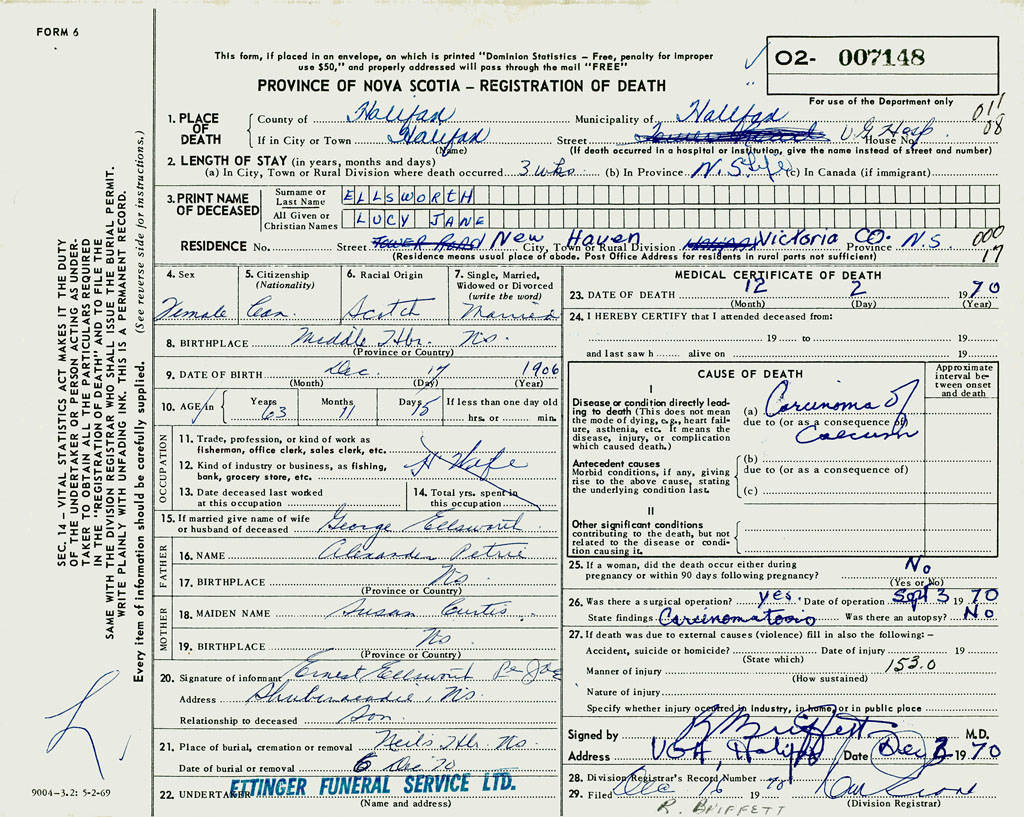 FORM 6
This form, if placed in an envelope, on which is printed "Dominion Statistics - Free, penalty for improper
use $50," and properly addressed will pass through the mail "FREE"
O2- 007148
PROVINCE OF NOVA SCOTIA - REGISTRATION OF DEATH
For use of the Department only
011
08
1. PLACE OF DEATH
County of Halifax Municipality of Halifax
If in City or Town Halifax Street V.G. Hosp. House No.
(Name) (If death occurred in a hospital or institution, give the name instead of street and number)
2. LENGTH OF STAY (in years, months and days)
(a) In City, Town or Rural Division where death occurred 3 wks. (b) In Province N.S. Life (c) In Canada (if immigrant)
3. PRINT NAME OF DECEASED
Surname or Last Name ELLSWORTH
All Given or Christian Names LUCY JANE
RESIDENCE No. Street Tower Road New Haven City, Town or Rural Division Halifax Victoria Co. Province N.S. 000
17
(Residence means usual place of abode. Post Office Address for residents in rural parts not sufficient)
4. Sex Female
5. Citizenship (Nationality) Can.
6. Racial Origin Scotch
7. Single, Married, Widowed or Divorced (write the word) Married
8. BIRTHPLACE Middle Hbr. N.S.
(Province or Country)
9. DATE OF BIRTH Dec. 17 1906
(Month) (Day) (Year)
10. AGE in Years 63 Months 11 Days 15 If less than one day old
hrs. or min.
OCCUPATION
11. Trade, profession, or kind of work as fisherman, office clerk, sales clerk, etc.
H Wife
12. Kind of industry or business, as fishing, bank, grocery store, etc.
13. Date deceased last worked at this occupation
14. Total yrs. spent in this occupation
15. If married give name of wife or husband of deceased George Ellsworth
FATHER
16. NAME Alexander Petrie
17. BIRTHPLACE N.S.
(Province or Country)
MOTHER
18. MAIDEN NAME Susan Curtis
19. BIRTHPLACE N.S.
(Province or Country)
20. Signature of informant Ernest Ellsworth
Address Shubenacadie, N.S.
Relationship to deceased Son
21. Place of burial, cremation or removal Neils Hbr. N.S.
Date of burial or removal 6 Dec 70
22. UNDERTAKER ETTINGER FUNERAL SERVICE LTD.
(Name and address)
MEDICAL CERTIFICATE OF DEATH
23. DATE OF DEATH 12 2 1970
(Month) (Day) (Year)
24. I HEREBY CERTIFY that I attended deceased from:
19 to 19
and last saw h alive on 19
CAUSE OF DEATH
Approximate interval between onset and death
I
Disease or condition directly leading to death (This does not mean the mode of dying, e.g., heart failure, asthenia, etc. It means the disease, injury, or complication which caused death.)
(a) Carcinoma of
due to (or as a consequence of)
Caecum
Antecedent causes
Morbid conditions, if any, giving rise to the above cause, stating the underlying condition last.
(b)
due to (or as a consequence of)
(c)
II
Other significant conditions
contributing to the death, but not related to the disease or condition causing it.
25. If a woman, did the death occur either during pregnancy or within 90 days following pregnancy? No
(Yes or No)
26. Was there a surgical operation? yes Date of operation Sept 3 1970
State findings Carcinomatosis Was there an autopsy? No
27. If death was due to external causes (violence) fill in also the following: -
Accident, suicide or homicide? Date of injury 19
(State which)
Manner of injury 153.0
(How sustained)
Nature of injury
Specify whether injury occurred in industry, in home, or in public place
Signed by B Briffett M.D.
Address VGH, Halifax Date Dec 3 1970
28. Division Registrar's Record Number
29. Filed Dec 16 1970
(Division Registrar)
R. BRIFFETT
SEC. 14 - VITAL STATISTICS ACT MAKES IT THE DUTY
OF THE UNDERTAKER OR PERSON ACTING AS UNDERTAKER
TO OBTAIN ALL THE PARTICULARS REQUIRED
IN THE "REGISTRATION OF DEATH" AND TO FILE THE
SAME WITH THE DIVISION REGISTRAR WHO SHALL ISSUE THE BURIAL PERMIT.
WRITE PLAINLY WITH UNFADING INK. THIS IS A PERMANENT RECORD.
Every item of information should be carefully supplied. (See reverse side for instructions.)
9004-3.2: 5-2-69